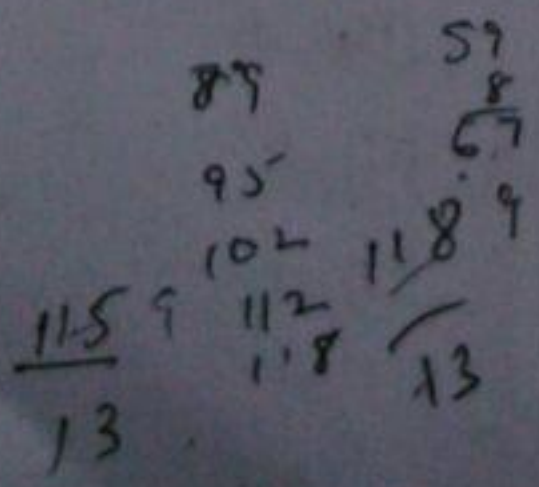 59
8
67
89
95
102
118 9
115 9
112
118
13
13